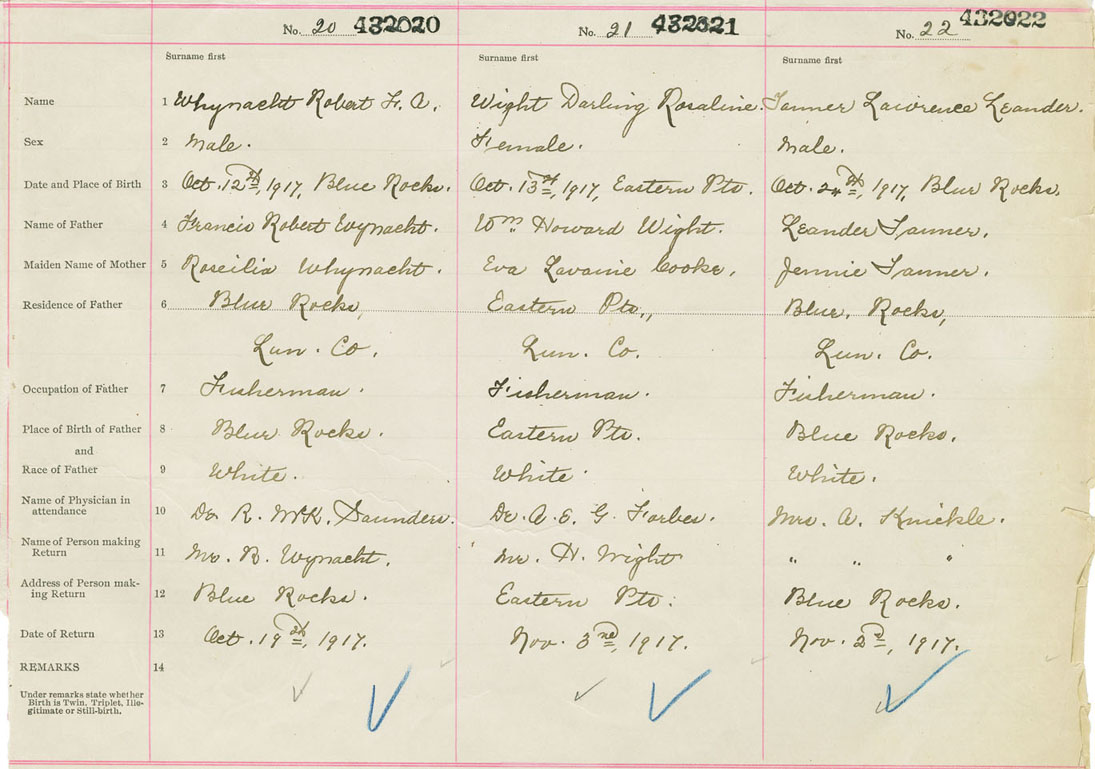 No. 20 432020 No. 21 432021 No. 22 432022
Surname first Surname first Surname first
Name 1 Whynacht Robert F. A. Wight Darling Rosaline. Tanner Lawrence Leander.
Sex 2 Male. Female. Male.
Date and Place of Birth 3 Oct. 12th, 1917, Blue Rocks. Oct. 13th, 1917, Eastern Pts. Oct. 24th, 1917, Blue Rocks.
Name of Father 4 Francis Robert Wynacht. Wm. Howard Wight. Leander Tanner.
Maiden Name of Mother 5 Roseilia Whynacht. Eva Lavaine Cooke. Jennie Tanner.
Residence of Father 6 Blue Rocks, Eastern Pts., Blue. Rocks,
Lun. Co. Lun. Co. Lun. Co.
Occupation of Father 7 Fisherman. Fisherman. Fisherman.
Place of Birth of Father 8 Blue Rocks. Eastern Pts. Blue Rocks.
and
Race of Father 9 White. White. White.
Name of Physician in
attendance 10 Dr. R. McK. Saunders. Dr. A. E. G. Forbes. Mrs. A. Knickle.
Name of Person making
Return 11 Mr. R. Wynacht. Mr. H. Wight " " "
Address of Person mak-
ing Return 12 Blue Rocks. Eastern Pts. Blue Rocks.
Date of Return 13 Oct. 19th, 1917. Nov. 3nd, 1917. Nov. 2d, 1917.
REMARKS 14
Under remarks state whether
Birth is Twin, Triplet, Ille-
gitimate or Still-birth.